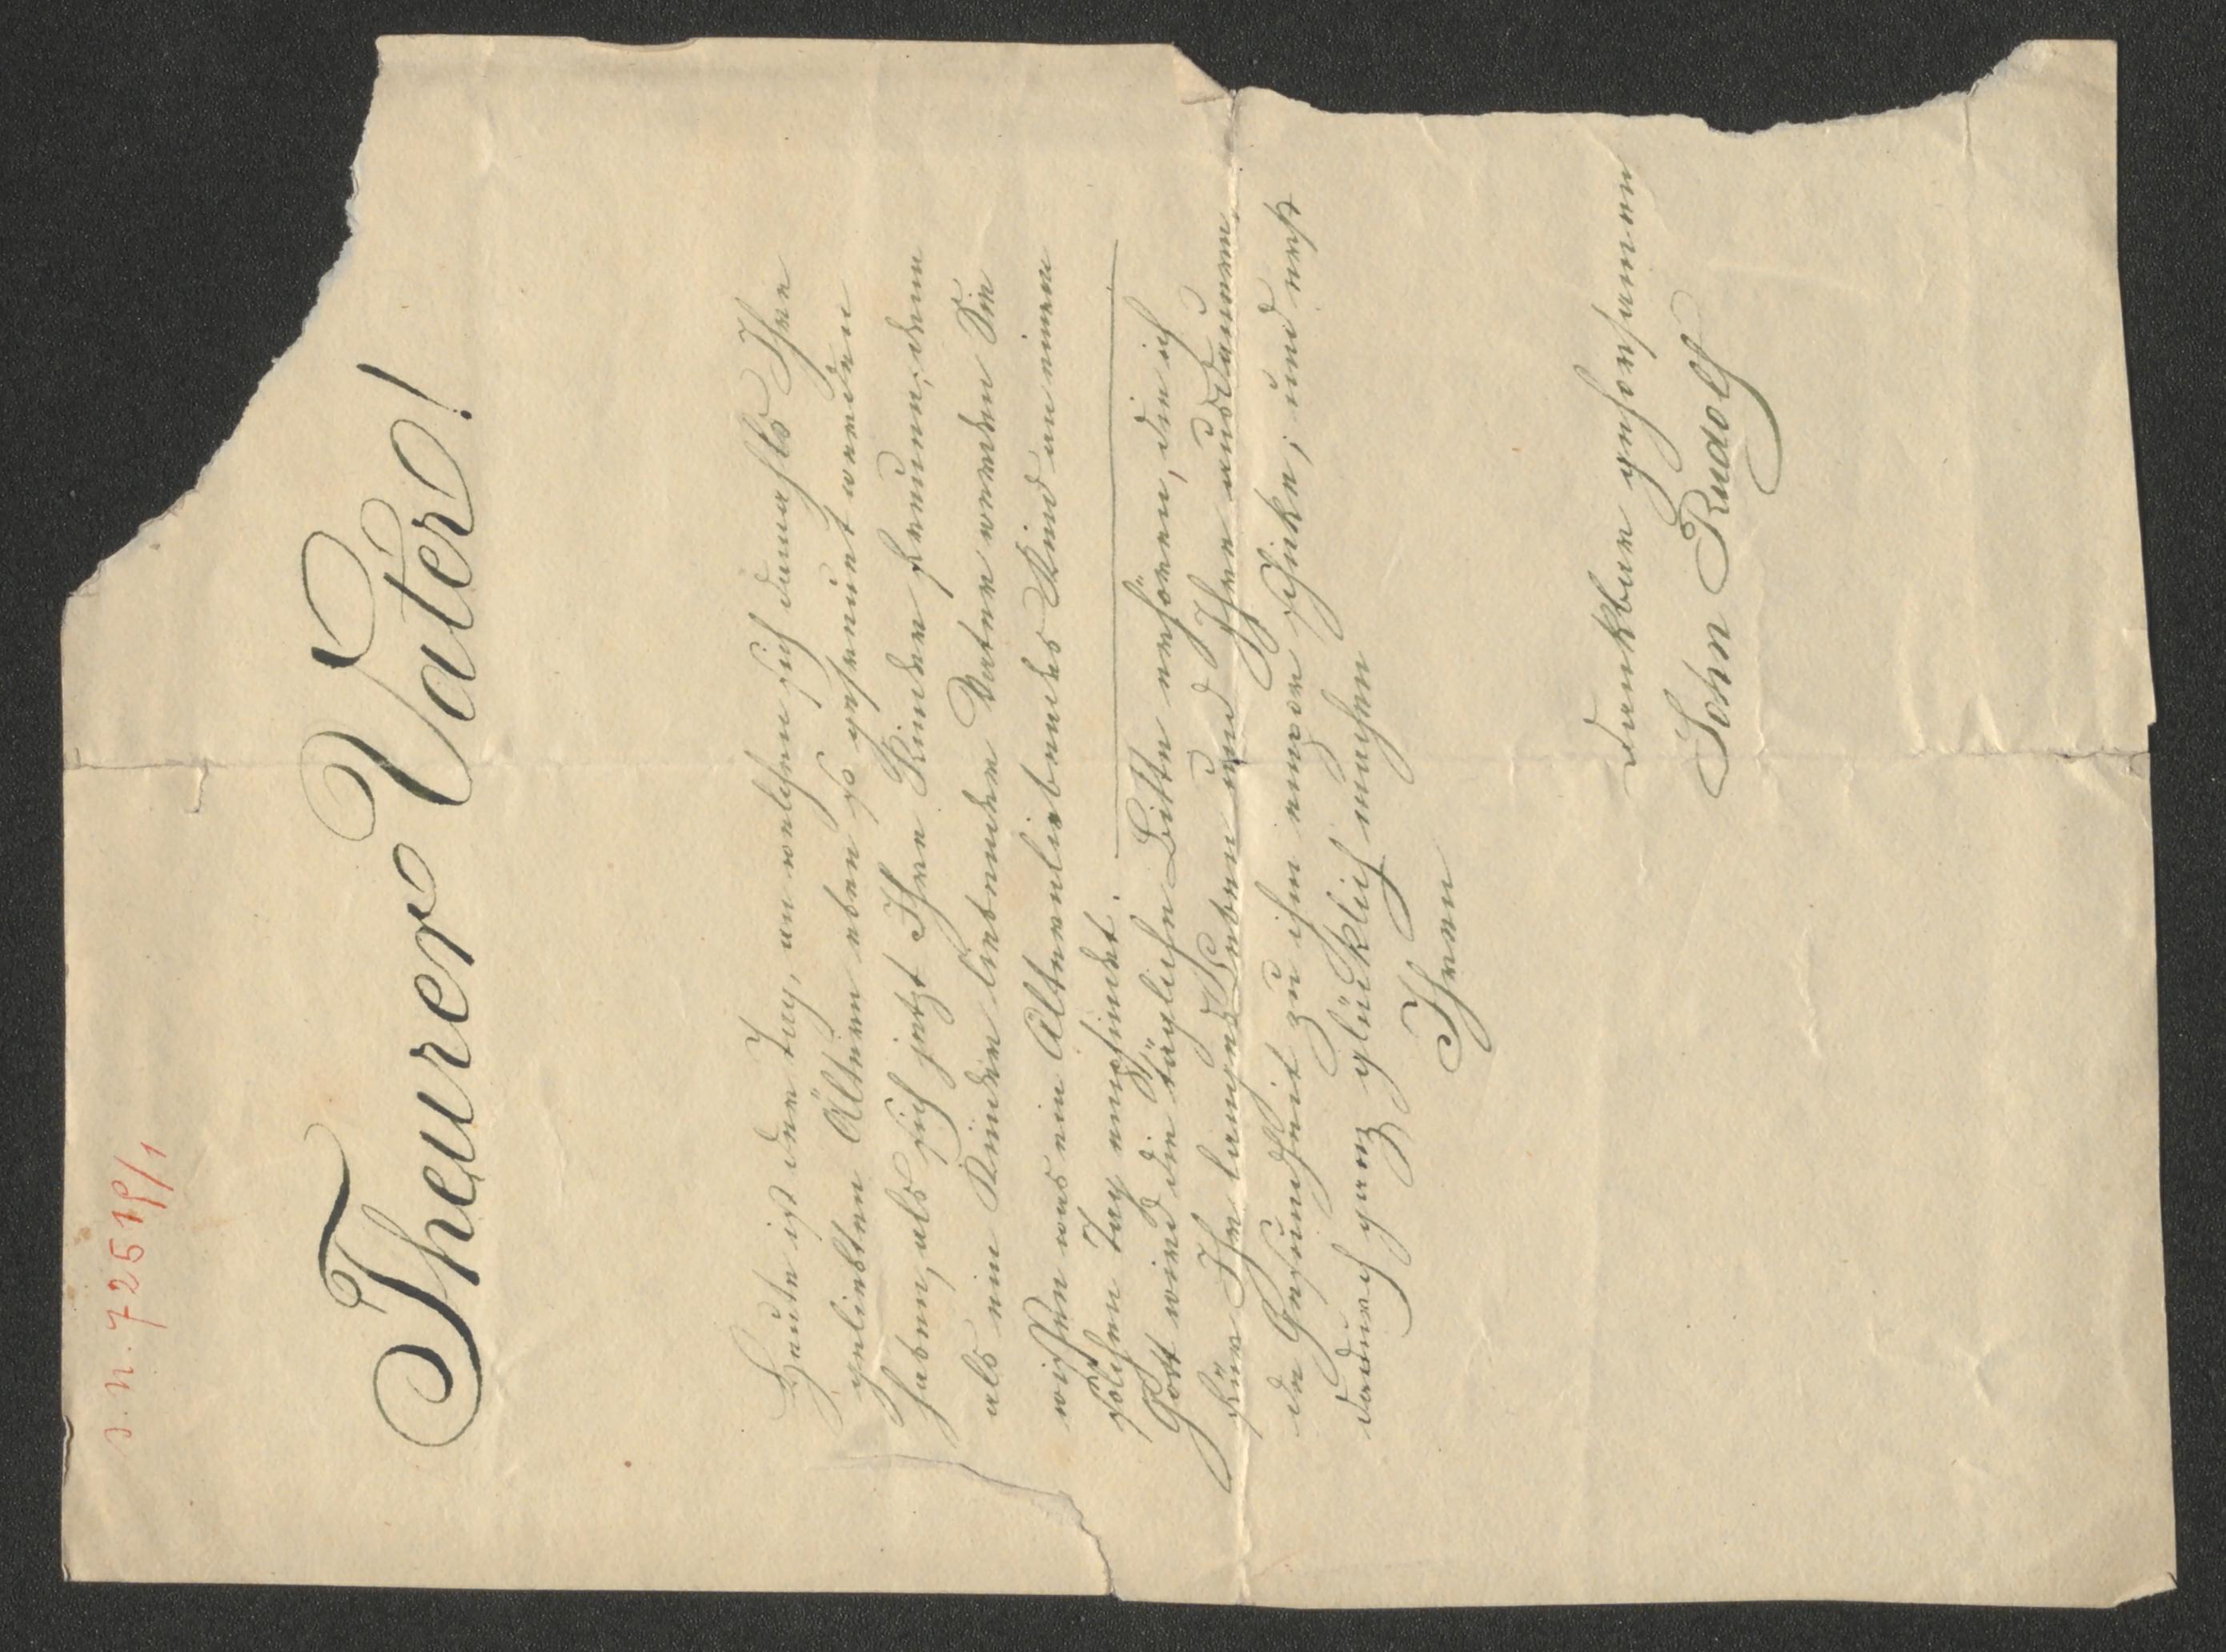 I. N. 7251P/1
Theurer Vater!
Heute ist der Tag, an welchen sich damahls Ihre
geliebten Ältern eben so gefreuet werden
haben, als sich jetzt Ihre Kinder freuen, denn
als ein Kinder liebender Vater werden Sie
wissen was ein Alternliebendes Kind an einen
solchen Tag empfindet.
Gott wird die tägliche Bitte erhören, die ich
für Ihr langes Leben und Ihre ausdauernn
de Gesundheit zu ihm empor schicke, und erst
dadurch ganz glücklich machen
Ihren
dankbar gehorsamen
Sohn Rudolf